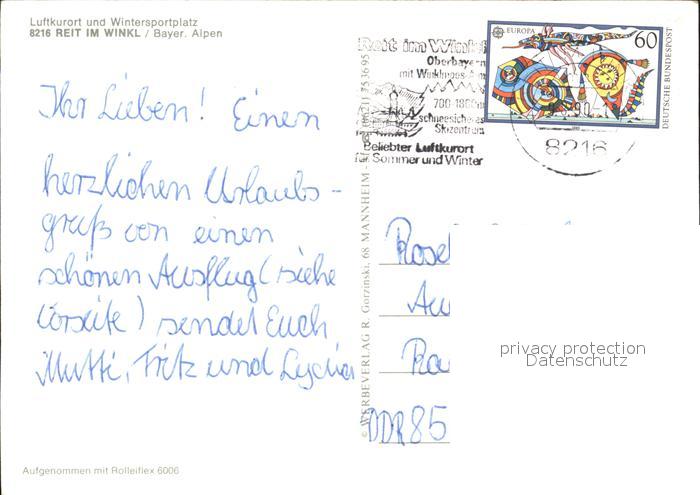 Luftkurort und Wintersportplatz
8216 REIT IM WINKL / Bayer. Alpen
Ihr Lieben! Einen
herzlichen Urlaubs-
gruß von einen
schönen Ausflug (siehe
Vorseite) sendet Euch
Mutti, Fritz und Lydia
Aufgenommen mit Rolleiflex 6006
© WERBEVERLAG R. Gorzinski, 68 MANNHEIM
Reit im Winkl
Oberbayern
mit Winklmoos-Alm
700-1800m
schneesicheres
Skizentrum
Beliebter Luftkurort
für Sommer und Winter
EUROPA
60
DEUTSCHE BUNDESPOST
8216
Rosel
Au
Ra
DDR 85
privacy protection
Datenschutz